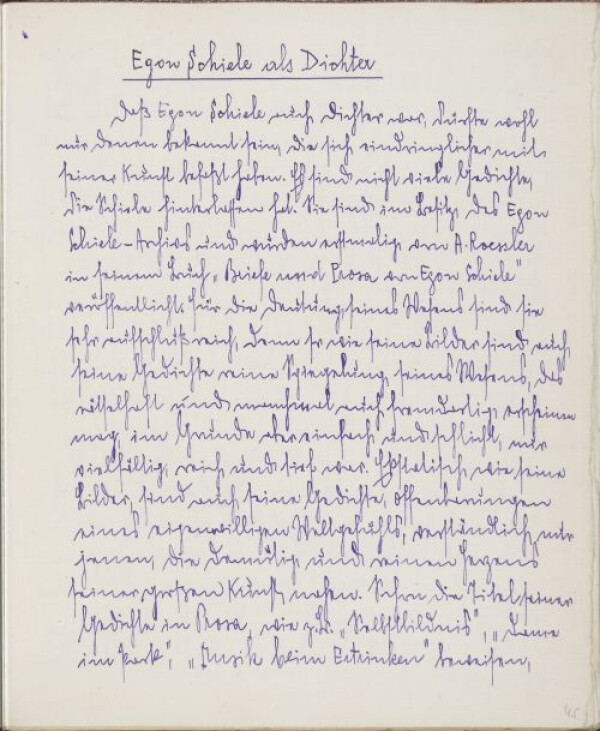 Egon Schiele als Dichter
Daß Egon Schiele auch Dichter war, dürfte wohl
nur denen bekannt sein, die sich eindringlicher mit
seiner Kunst befaßt haben. Es sind nicht viele Gedichte,
die Schiele hinterlassen hat. Sie sind im Besitz des Egon
Schiele-Archivs und wurden erstmalig von A. Roessler
in seinem Buch „Briefe und Prosa von Egon Schiele"
veröffentlicht. Für die Deutung seines Wesens sind sie
sehr aufschlußreich, denn so wie seine Bilder sind auch
seine Gedichte reine Spiegelung seines Wesens, das
rätselhaft und manchmal auch fremdartig erscheinen
mag, im Grunde aber einfach und schlicht, nur
vielfältig, reich und tief war. Ekstatisch wie seine
Bilder, sind auch seine Gedichte, Offenbarungen
eines eigenwilligen Weltgefühls, verständlich nur
jenen, die demütig und reinen Herzens
seiner großen Kunst nahen. Schon die Titel seiner
Gedichte in Prosa, wie z.B. „Selbstbildnis", „Dame
im Park", „Musik beim Ertrinken" beweisen,
45